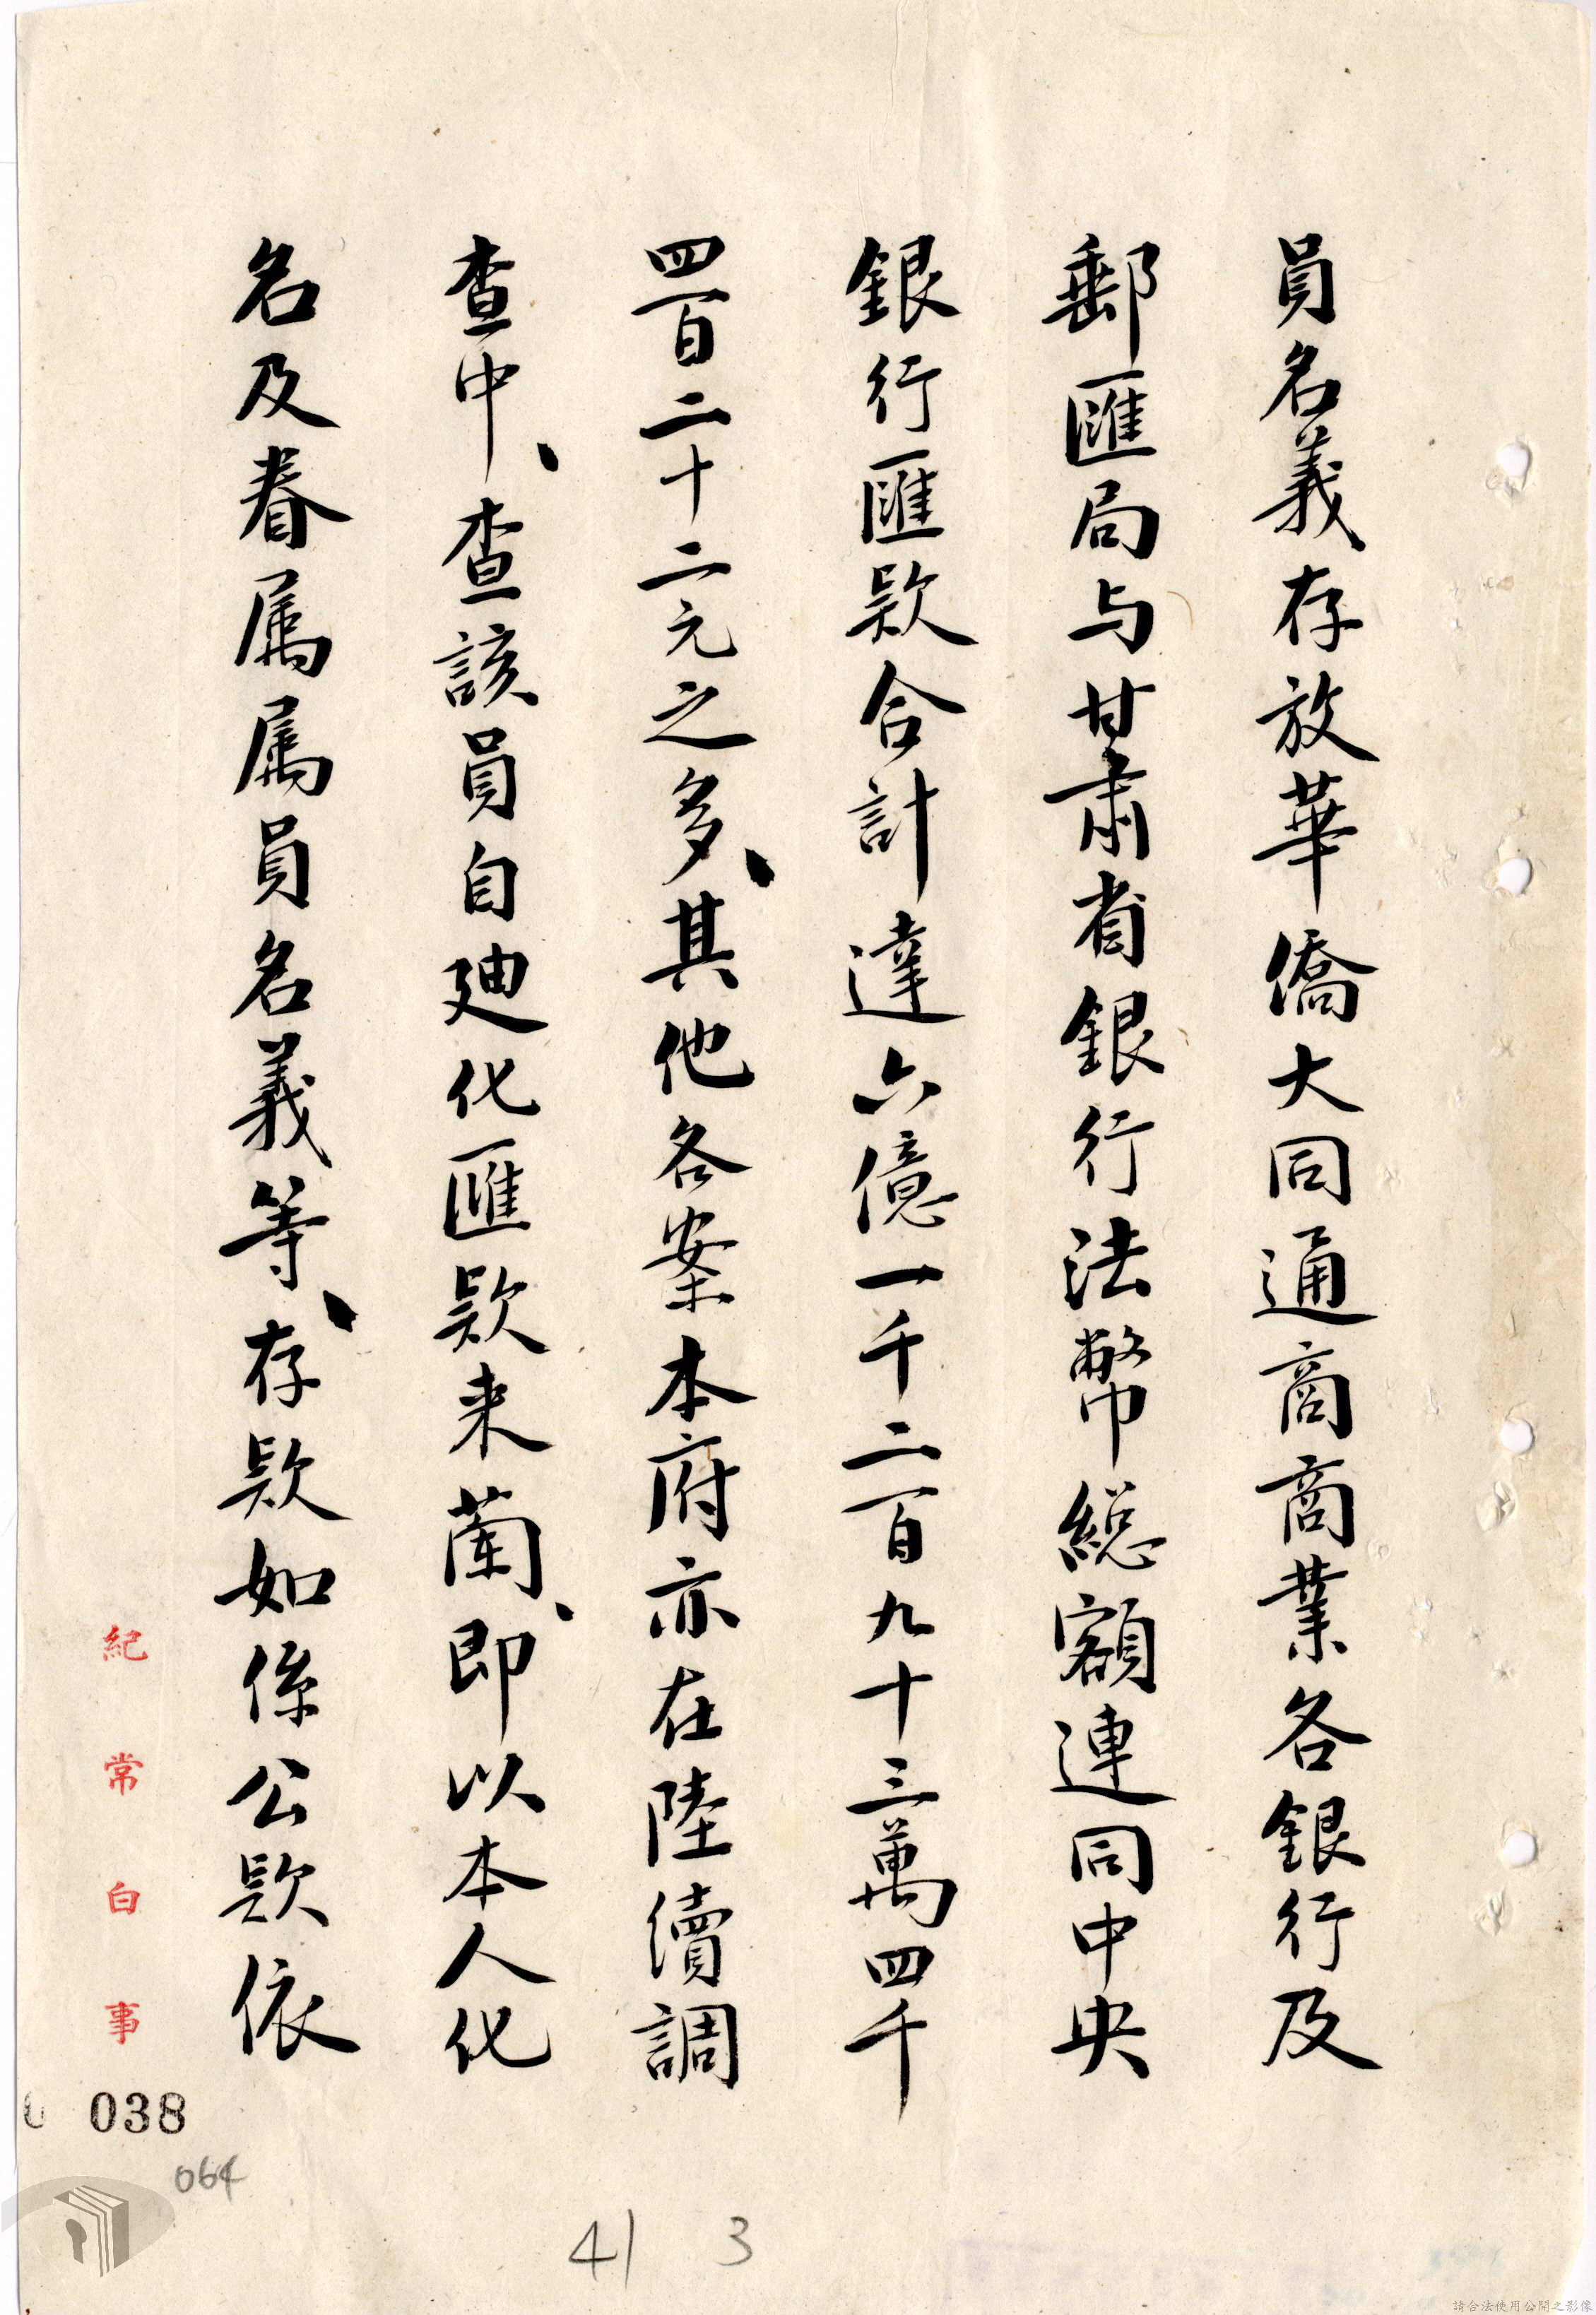 員名義存放華僑大同通商商業各銀行及
郵匯局与甘肅省銀行法幣總額連同中央
銀行匯款合計達六億一千二百九十三萬四千
四百二十二元之多、其他各案本府亦在陸續調
查中、查該員自廸化匯款来蘭、即以本人化
名及眷属属員名義等、存款如係公款依
紀常白事
038
064
41 3
請合法使用公開之影像